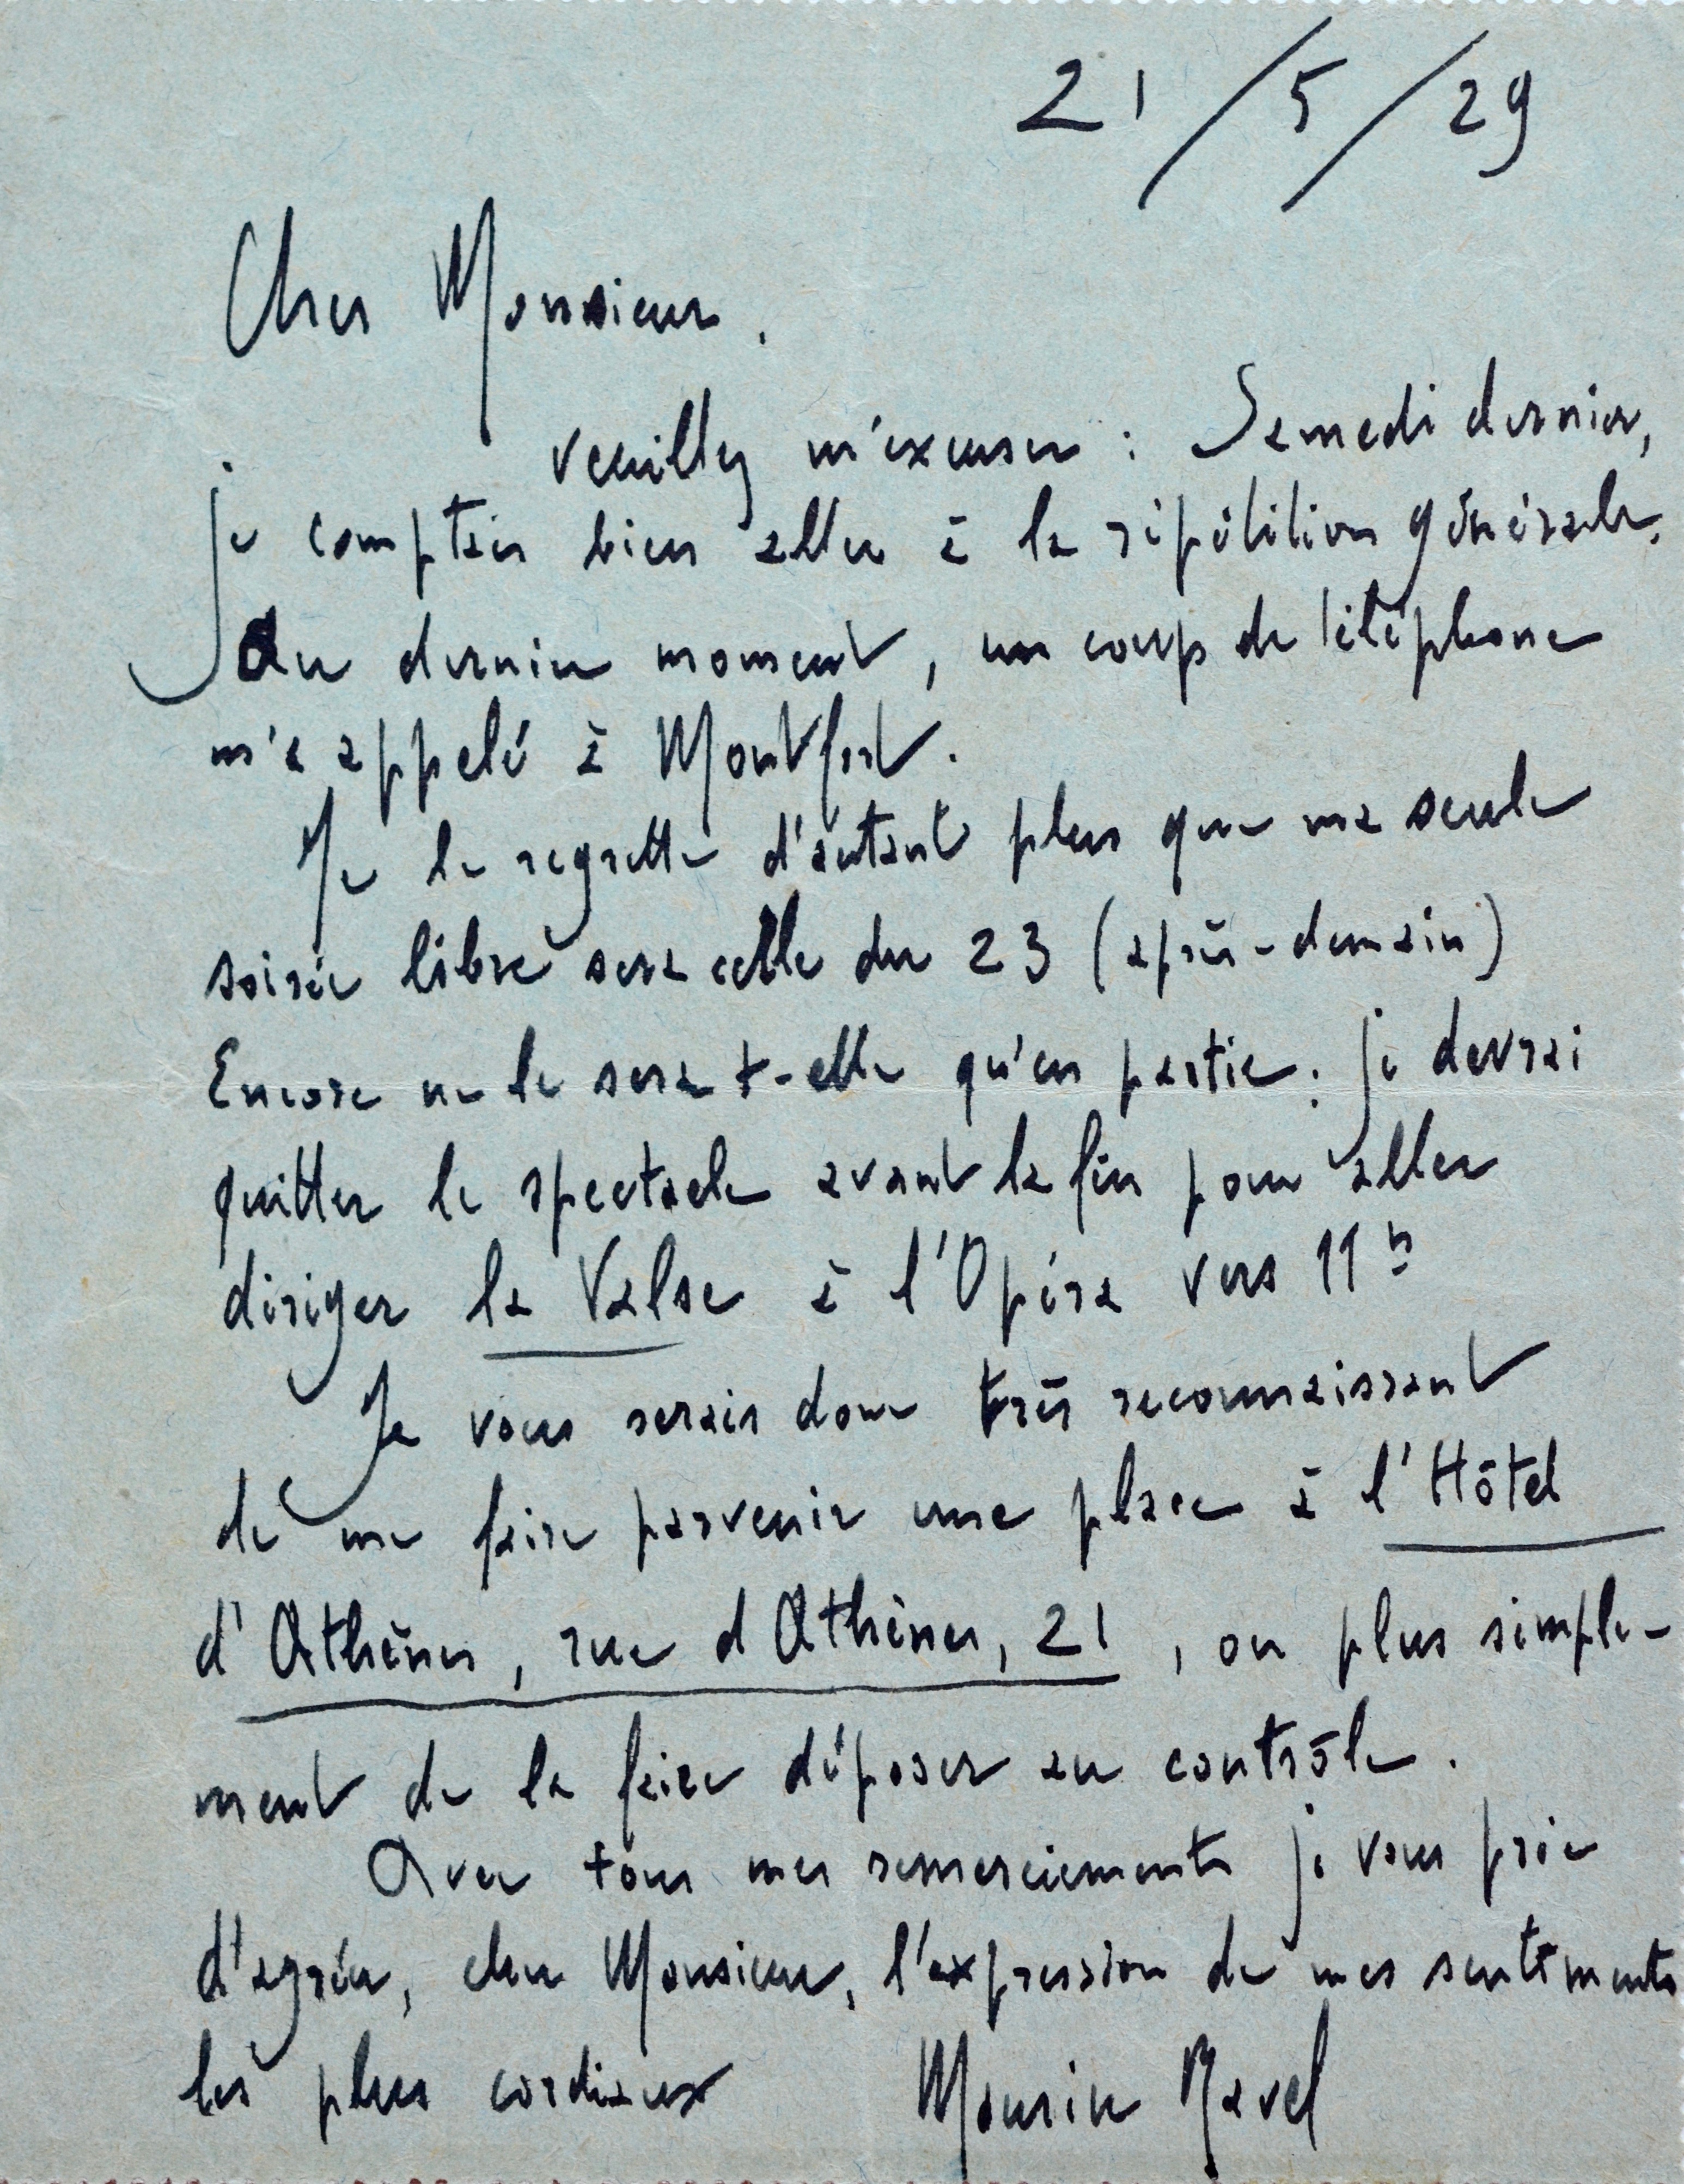 21/5/29
Cher Monsieur,
veuillez m'excuser : Samedi dernier,
je comptais bien aller à la répétition générale.
Au dernier moment, un coup de téléphone
m'a appelé à Montfort.
Je le regrette d'autant plus que ma seule
soirée libre sera celle du 23 (après-demain)
Encore ne le sera t-elle qu'en partie : je devrai
quitter le spectacle avant la fin pour aller
diriger la Valse à l'Opéra vers 11h
Je vous serais donc très reconnaissant
de me faire parvenir une place à l'Hôtel
d'Athènes, rue d Athènes, 21, ou plus simple-
ment de la faire déposer au contrôle.
Avec tous mes remerciements je vous prie
d'agréer, cher Monsieur, l'expression de mes sentiments
les plus cordiaux Maurice Ravel